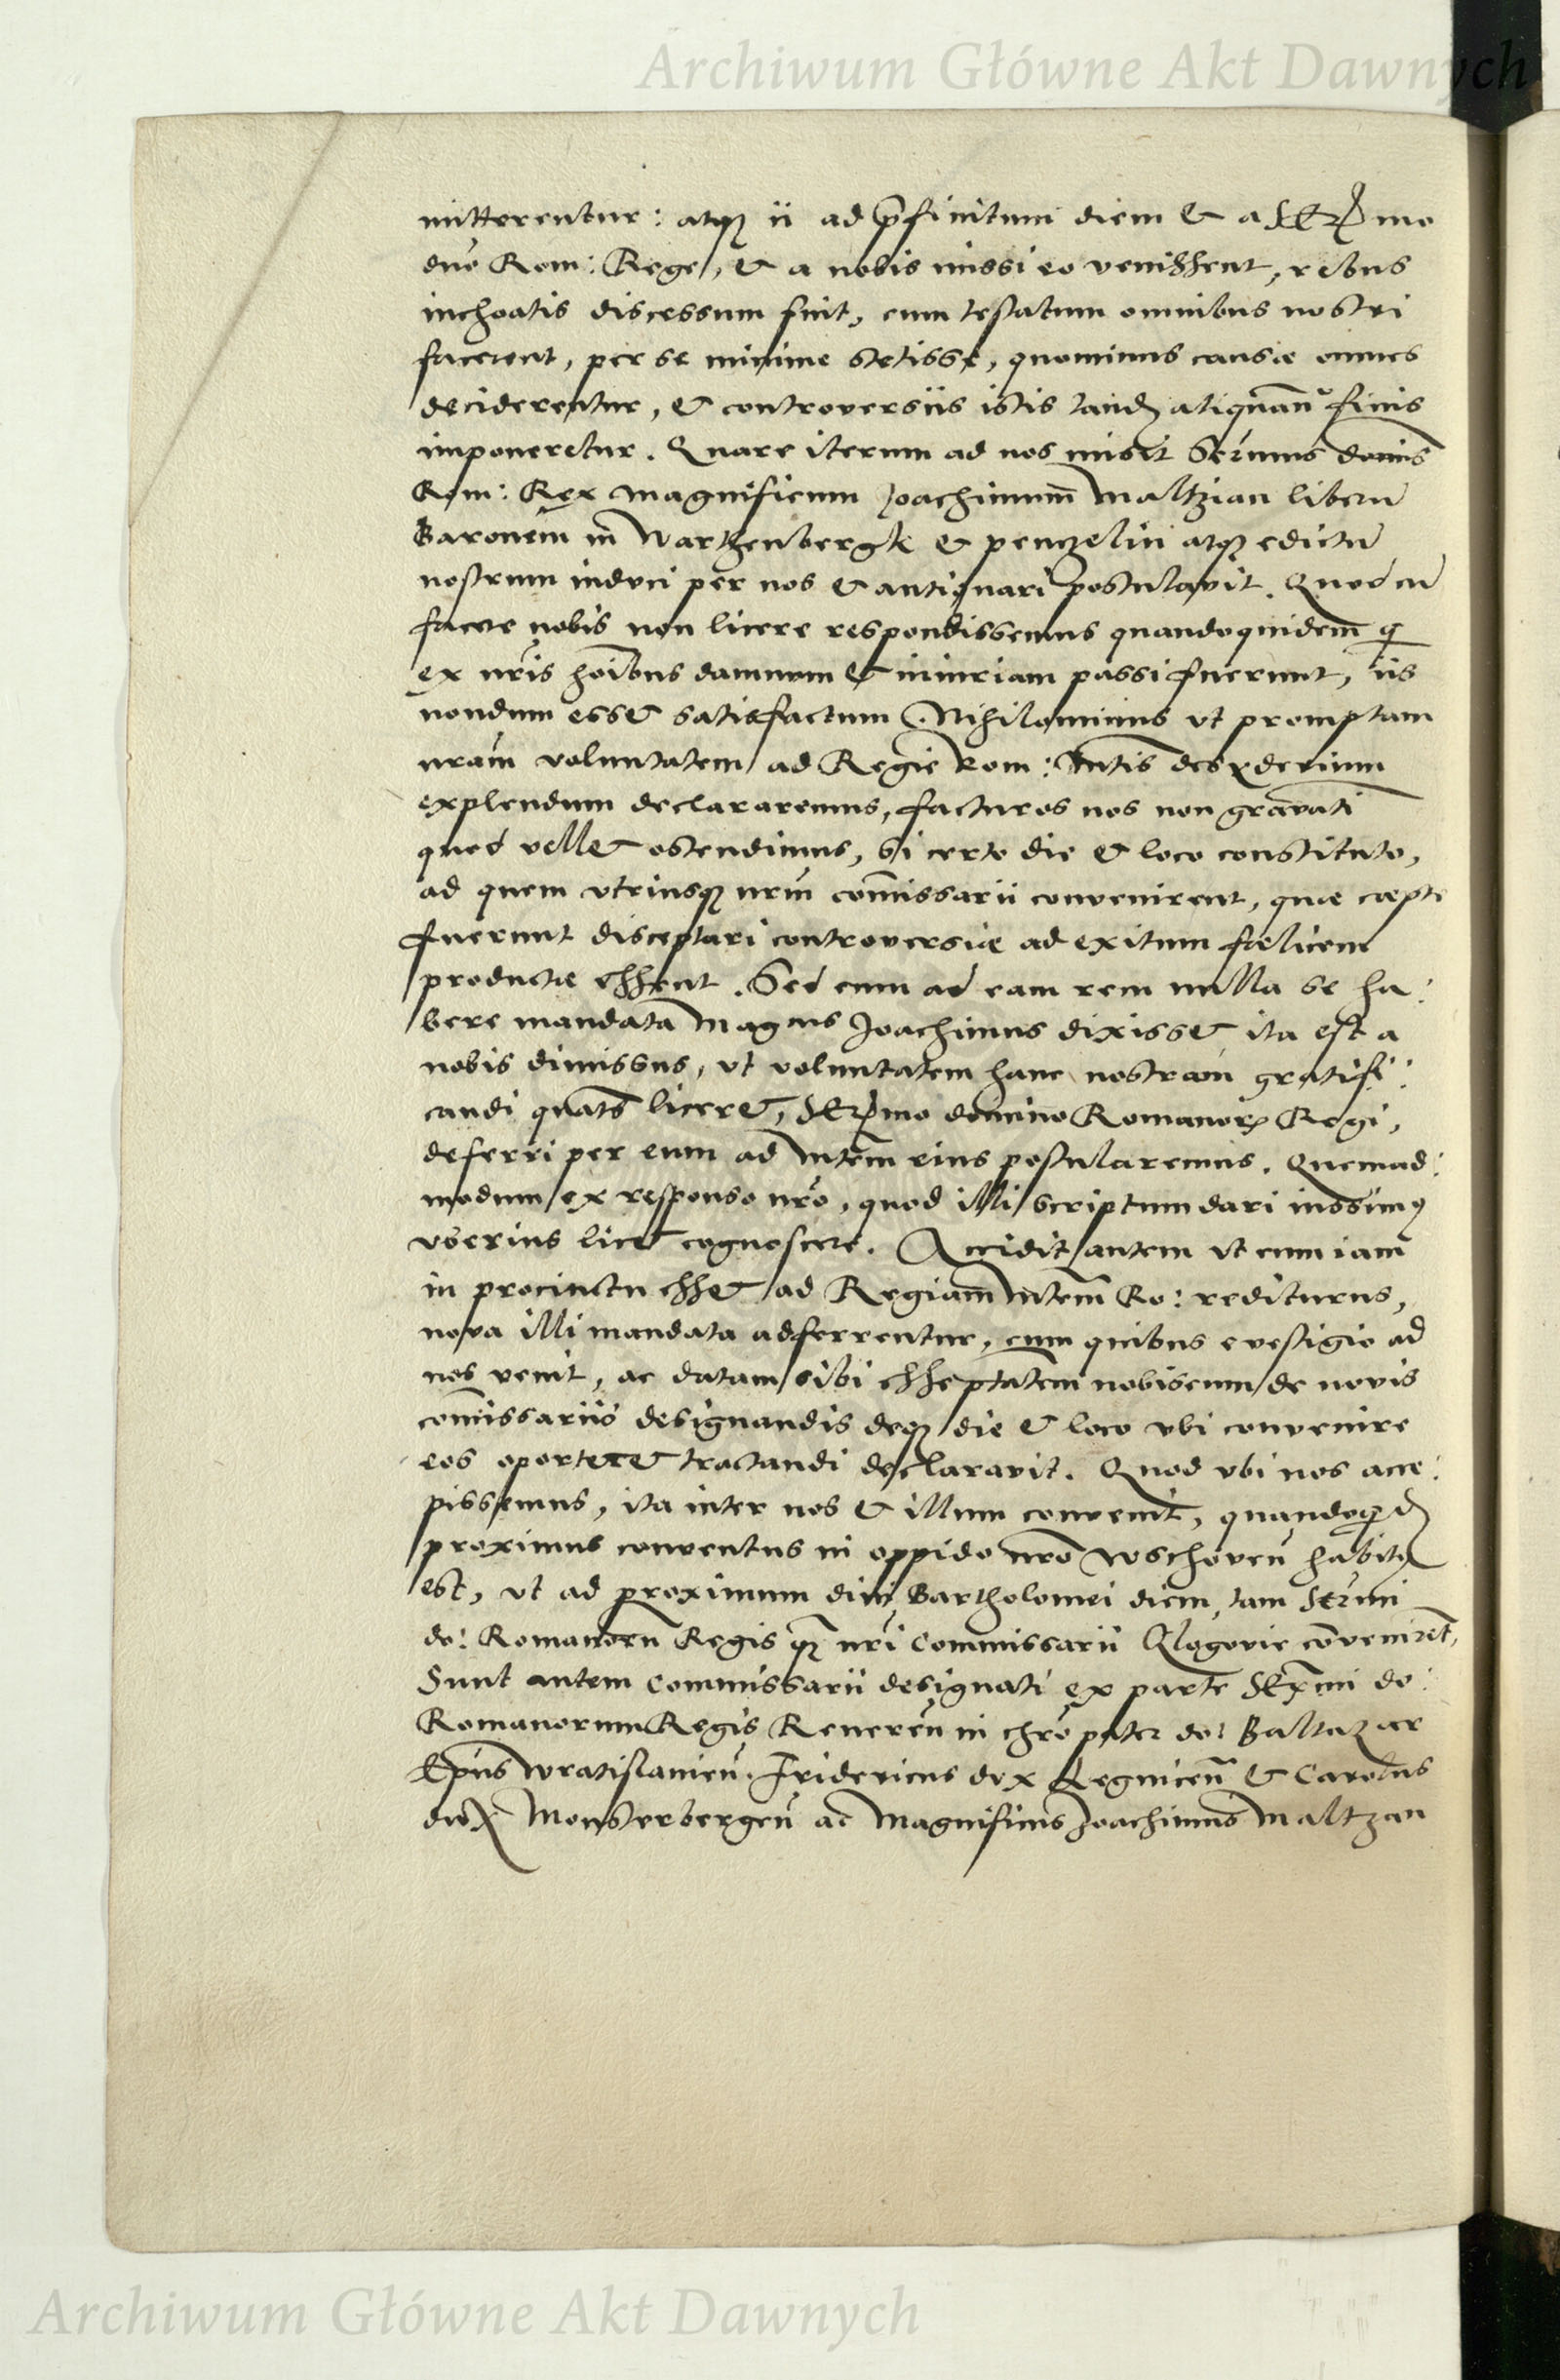 Archiwum Główne Akt Dawnych
mitterentur: atqꝫ ii ad p̃finitum diem & a SERmo
dno Rom: Rege, & a nobis missi eo venissent, rebus
inchoatis discessum fuit, cum testatum omnibus nostri
facerent, per se minime stetisse, quominus causæ omnes
deciderentur, & controversiis istis tandẽ aliquãn finis
imponeretur. Quare iterum ad nos misit Serũmus domis
Rom: Rex magnificum Joachimum Maltzian liberũ
Baronem in Wartzenbergk & penczelin atqꝫ edictũ
nostrum induci per nos & antiquari postulavit. Quod cũ
facere nobis non licere respondissemus quandoquidem q
ex nr̃is hoĩbus damnum & iniuriam passi fuerunt, iis
nondum esset satisfactum. Nihilominus ut promptam
nram voluntatem ad Regie Rom: Mtis desyderium
explendum declararemus, facturos nos non gravati
quod vellet ostendimus, si certo die & loco constituto,
ad quem utriusqꝫ nrm com̃issarii convenirent, quæ cœptæ
fuerunt disceptari controversiæ ad exitum fœlicem
productæ essent. Sed cum ad eam rem nulla se ha:
bere mandata Magcus Joachimus dixisset ita est a
nobis dimissus, ut voluntatem hanc nostram gratifi:
candi quats liceret, SERmo domino Romanorꝝ Regi,
deferri per eum ad Mtem eius postularemus. Quemad:
modum ex responso nro, quod illi scriptum dari iussimꝰ
uberius licet cognoscere. Accidit autem ut cum iam
in procinctu esset ad Regiam Mtem Ro: rediturus,
nova illi mandata adferrentur, cum quibus e vestigio ad
nos venit, ac datam sibi esse ptatem nobiscum de novis
com̃issariis designandis deqꝫ die & loco ubi convenire
eos oporteret tractandi declaravit. Quod ubi nos acce:
pissemus, ita inter nos & illum convenit, quandoqd
proximus conventus in oppido nro Wschoven habitꝰ
est, ut ad proximum divi Bartholomei diem tam Sermi
do: Romanorũ Regis qꝫ nri Commissarii Glogovie cõvenirẽt,
Sunt autem Commissarii designati ex parte SERmi do:
Romanorum Regis Reveren in chro pater do: Baltazar
Epus Wratislavien. Fridericus dux Legnicen & Carolus
dux Monsterbergen ac Magnificus Joachimus Maltzan
Archiwum Główne Akt Dawnych